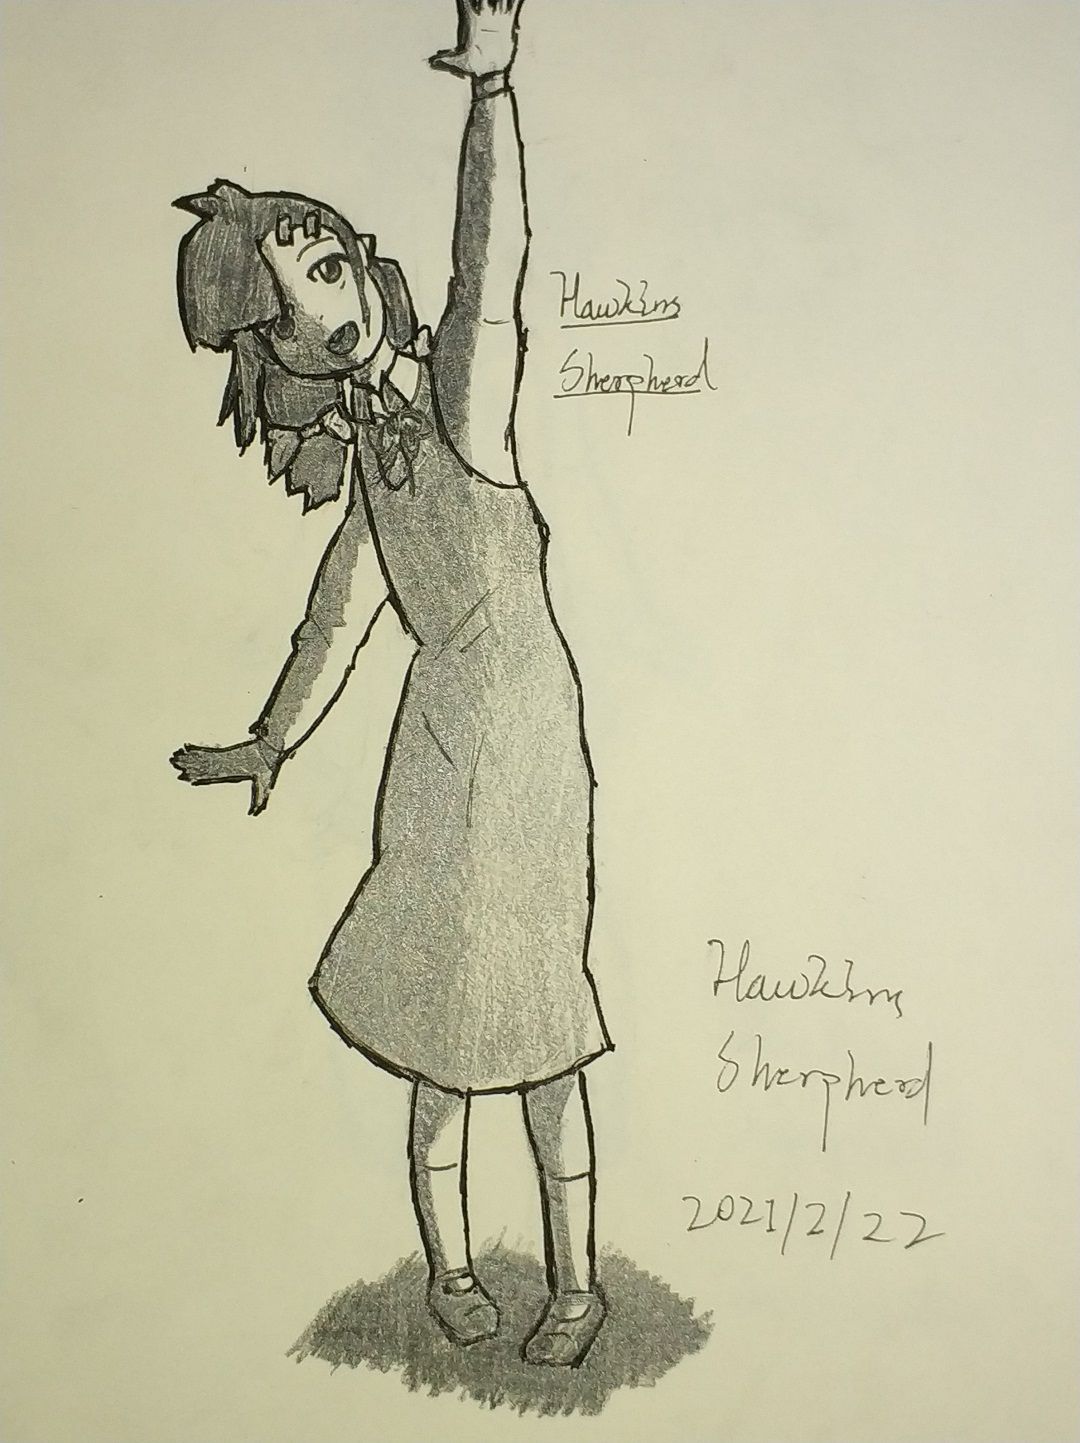 Hawkins
Sherpherd
Hawkins
Sherpherd
2021/2/22